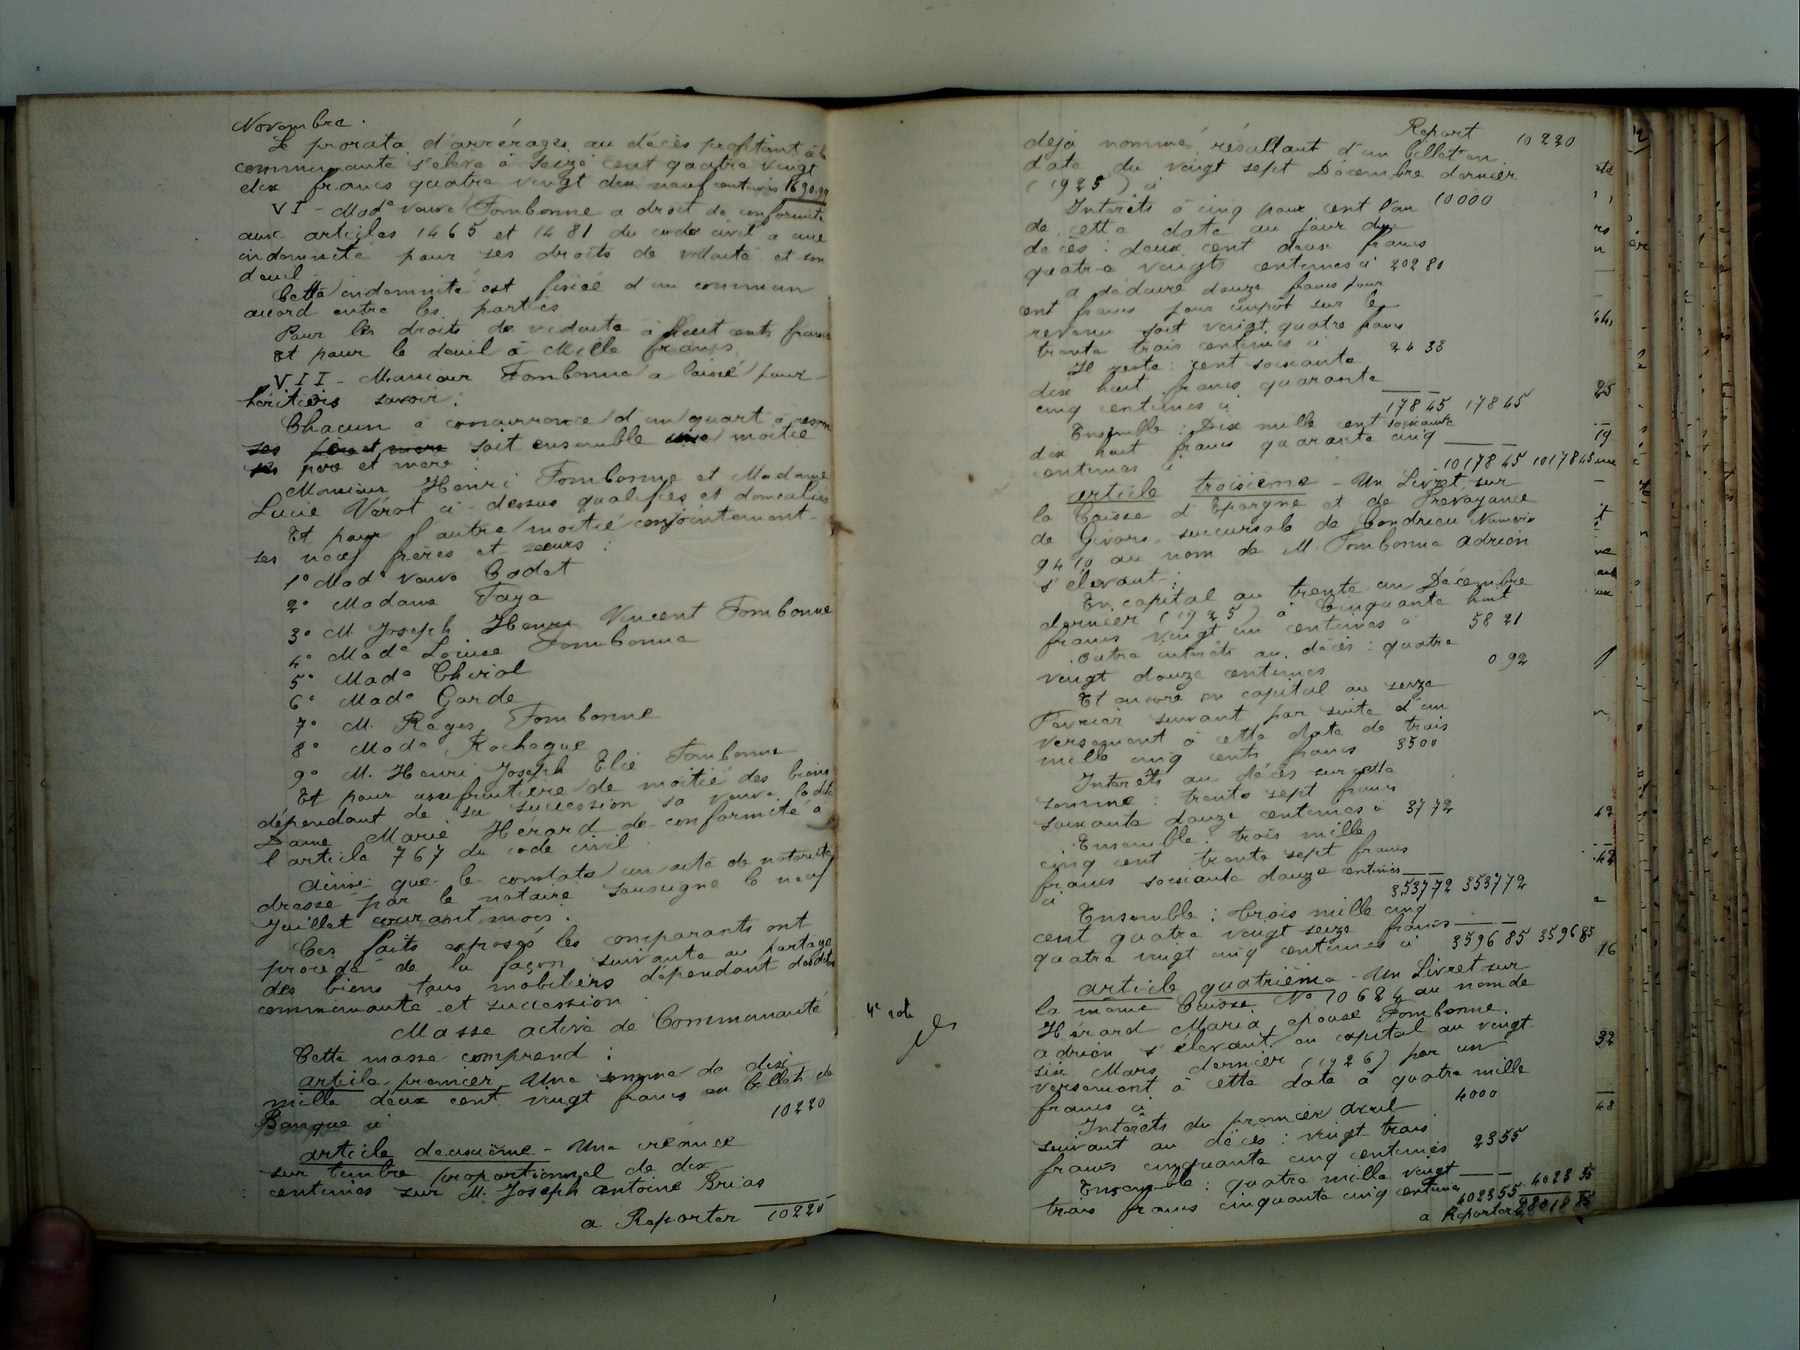 Novembre.
Le prorata d'arrérages au décès profitant à la
communauté s'elève à Seize cent quatre vingt
dix francs quatre vingt dix neuf centimes 1690.99
VI - Made veuve Fombonne a droit de conformité
aux articles 1465 et 1481 du code civil a une
indemnité pour ses droits de viduité et son
deuil
Cette indemnité est fixée d'un commun
accord entre les parties
Pour les droits de viduité à huit cents francs
Et pour le deuil à Mille francs
VII - Monsieur Fombonne a laissé pour
héritiers savoir :
Chacun à concurrence d'un quart à
ses père et mère soit ensemble une moitié
ses père et mère :
Monsieur Henri Fombonne et Madame
Lucie Vérot ci-dessus qualifiés et domiciliés
Et pour l'autre moitié conjointement
ses neuf frères et soeurs :
1° Made veuve Codet
2° Madame Faya
3° M. Joseph Henri Vincent Fombonne
4° Made Louise Fombonne
5° Made Chirol
6° Made Garde
7° M. Régis Fombonne
8° Made Rochegue
9° M. Henri Joseph Elie Fombonne
Et pour usufruitière de moitié des biens
dépendant de sa succession sa veuve ladite
Dame Marie Hérard de conformité à
l'article 767 du code civil
Ainsi que le constate un acte de notoriété
dressé par le notaire soussigné le neuf
Juillet courant mois.
Ces faits exposés les comparants ont
procédé de la façon suivante au partage
des biens tous mobiliers dépendant desdites
communauté et succession.
Masse active de Communauté
Cette masse comprend :
article premier, Une somme de dix
mille deux cent vingt francs en billets de
Banque ci 10220
article deuxième - Une créance
sur timbre proportionnel de dix
centimes sur M. Joseph Antoine Brias
a Reporter 10220
Report 10220
déjà nommé, résultant d'un billet en
date du vingt sept Décembre dernier
(1925) ci 10000
Intérêts à cinq pour cent l'an
de cette date au jour du
décès : deux cent deux francs
quatre vingts centimes ci 202 80
A déduire douze francs pour
cent francs pour impot sur le
revenu soit vingt quatre francs
trente trois centimes ci 24 33
Il reste : cent soixante
dix huit francs quarante
cinq centimes ci 178 45 178 45
Ensemble : Dix mille cent soixante
dix huit francs quarante cinq
centimes ci 10178 45 10178 45
article troisième - Un Livret sur
la Caisse d'Epargne et de Prévoyance
de Givors succursale de Condrieu Numéro
9410 au nom de M. Fombonne Adrien
s'élevant :
En capital au trente un Décembre
dernier (1925) à Cinquante huit
francs vingt un centimes ci 58 21
Outre intérêts au décès : quatre
vingt douze centimes 0 92
Et encore en capital au seize
Février suivant par suite d'un
versement à cette date de trois
mille cinq cents francs 3500
Intérêts au décès sur cette
somme : trente sept francs
soixante douze centimes ci 37 72
Ensemble : trois mille
cinq cent trente sept francs
francs soixante douze centimes
ci 3537 72 3537 72
Ensemble : trois mille cinq
cent quatre vingt seize francs
quatre vingt cinq centimes ci 3596 85 3596 85
article quatrième - Un Livret sur
la même Caisse N° 10624 au nom de
Hérard Maria, épouse Fombonne
Adrien s'élevant en capital au vingt
six Mars dernier (1926) par un
versement à cette date à quatre mille
francs ci 4000
Intérêts du premier Avril
suivant au décès : vingt trois
francs cinquante cinq centimes 23 55
Ensemble : quatre mille vingt
trois francs cinquante cinq centimes 4023 55 4023 55
a Reporter 28018 85